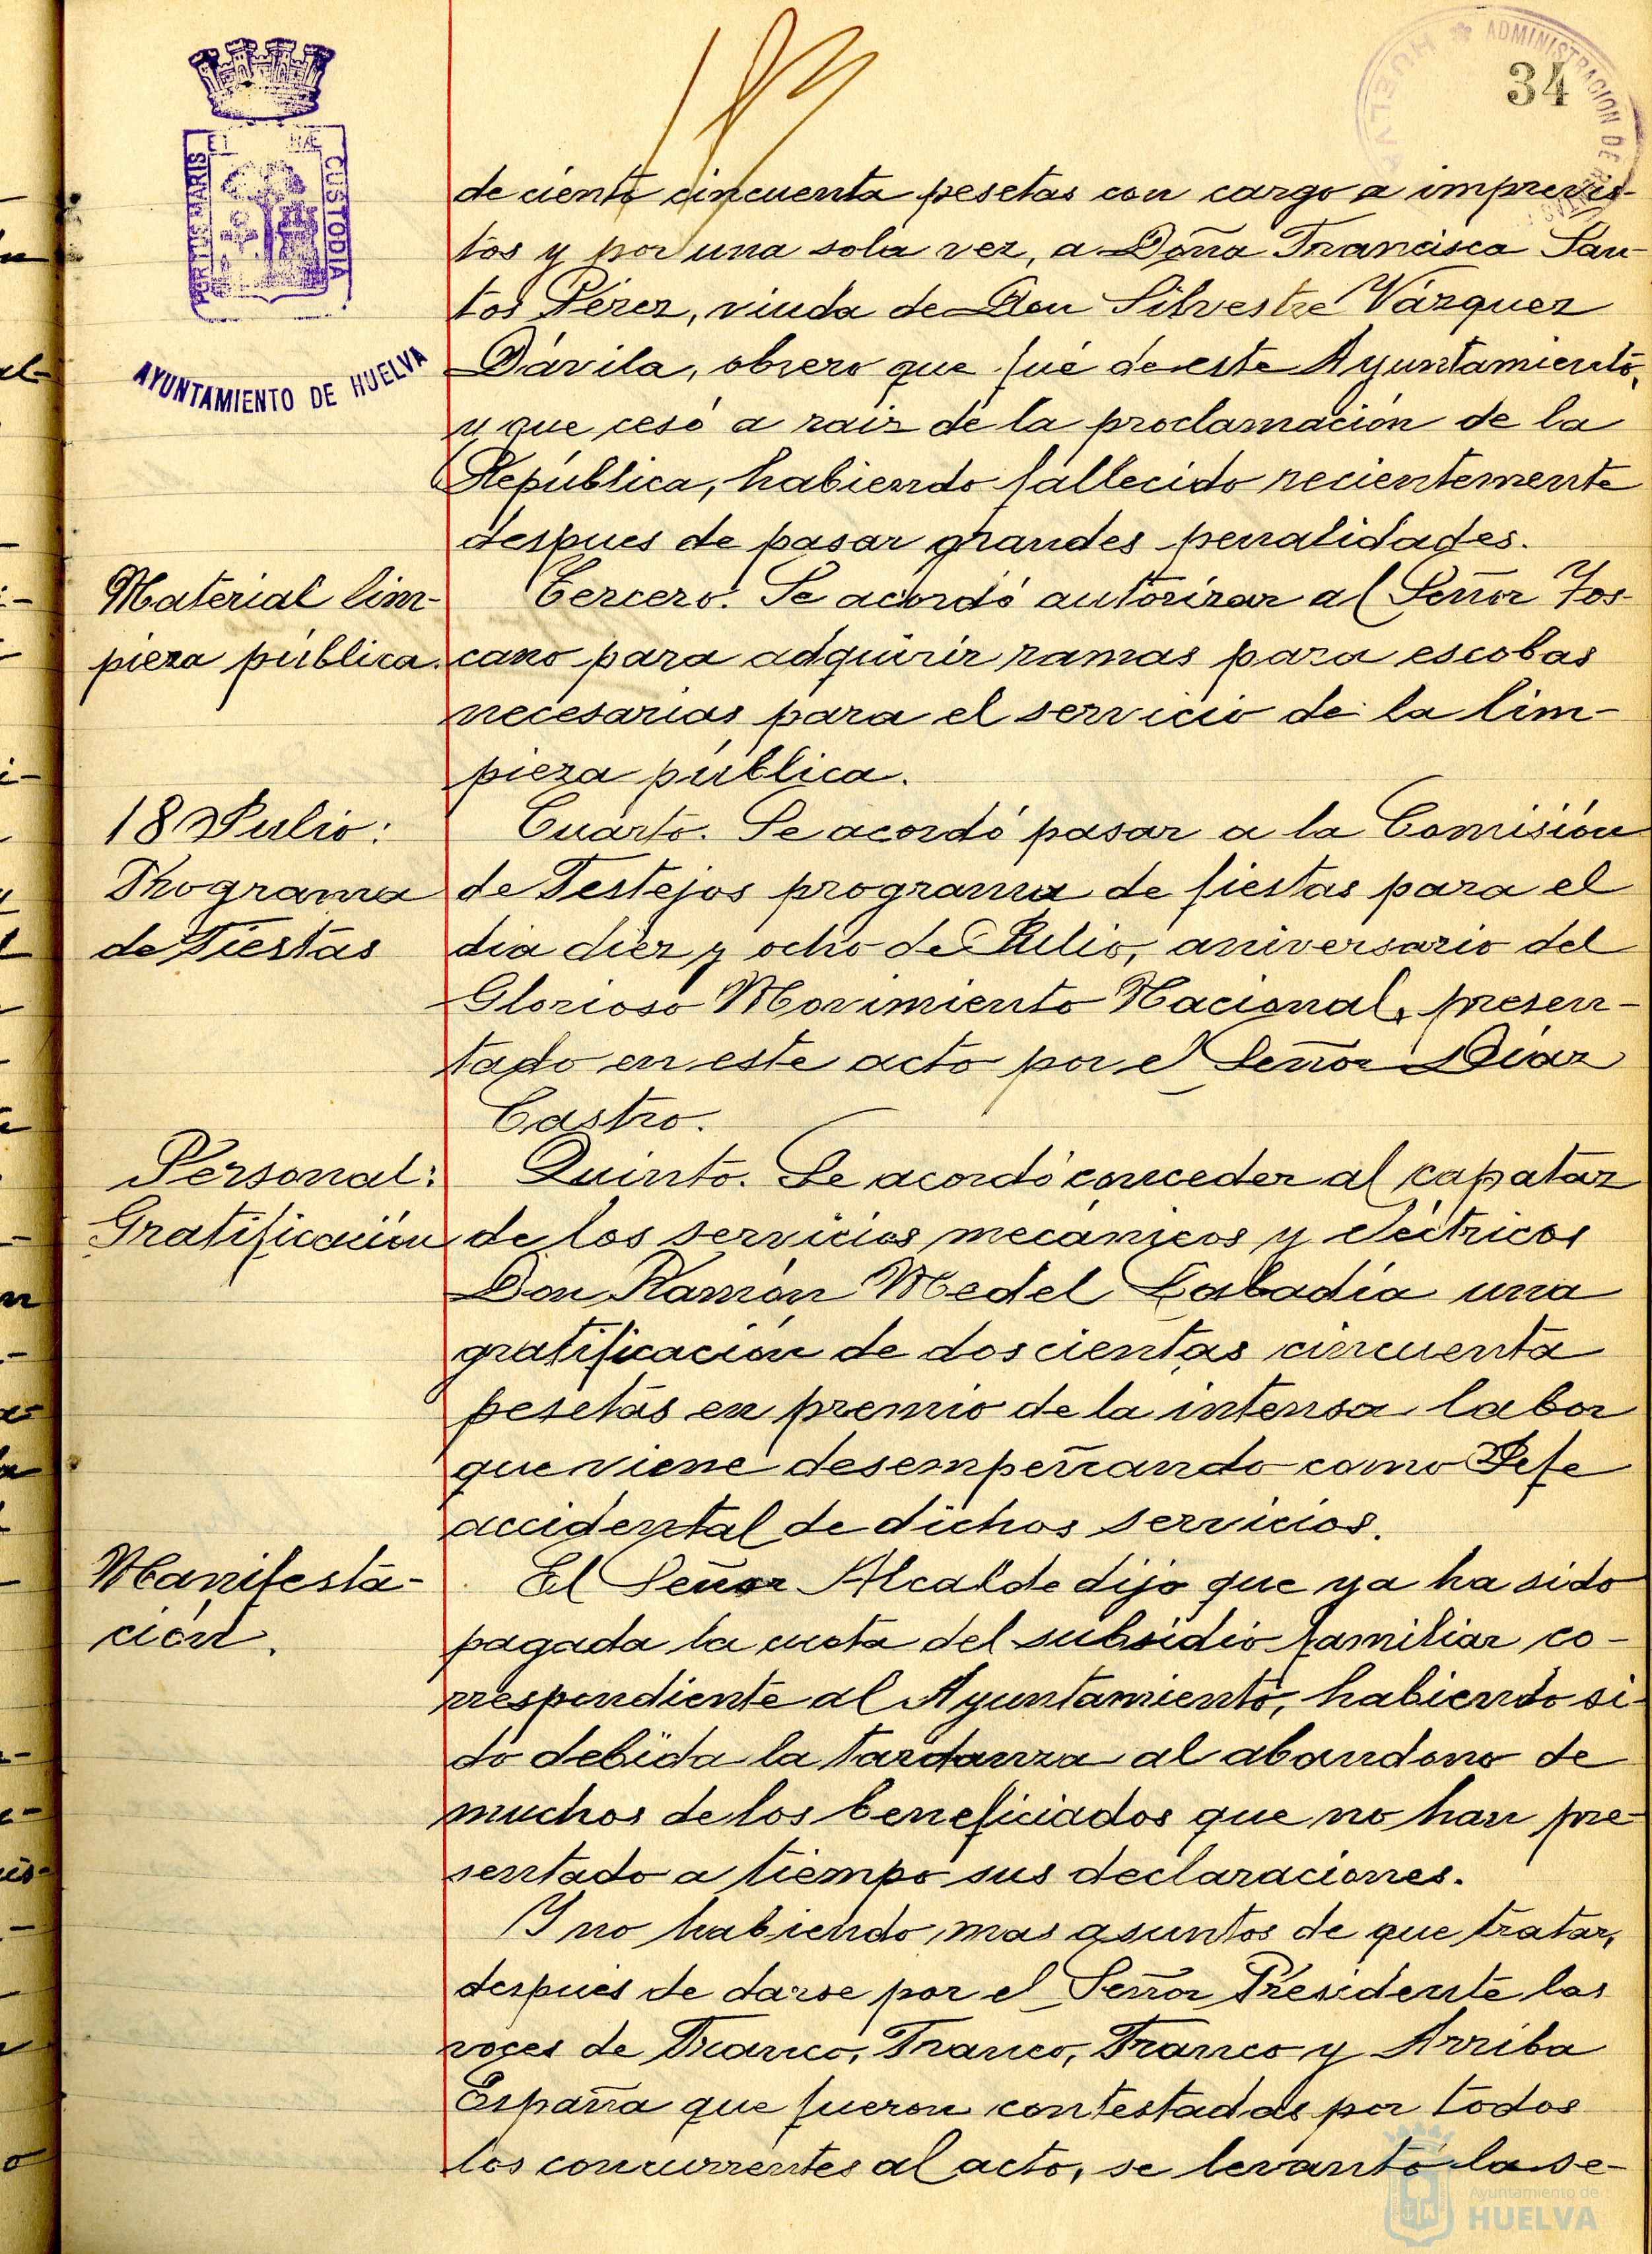 34
HUELVA ADMINISTRACION DE
PORTUS MARIS ET TERRAE CUSTODIA
AYUNTAMIENTO DE HUELVA
de ciento cincuenta pesetas con cargo a imprevis-
tos y por una sola vez, a Doña Francisca San-
tos Pérez, viuda de Don Silvestre Vázquez
Dávila, obrero que fué de este Ayuntamiento,
y que cesó a raiz de la proclamación de la
República, habiendo fallecido recientemente
despues de pasar grandes penalidades.
Material lim-
pieza pública.
Tercero. Se acordó autorizar al Señor Tos-
cano para adquirir ramas para escobas
necesarias para el servicio de la lim-
pieza pública.
18 Julio:
Programa
de Fiestas
Cuarto. Se acordó pasar a la Comisión
de Festejos programa de fiestas para el
dia diez y ocho de Julio, aniversario del
Glorioso Movimiento Nacional, presen-
tado en este acto por el Señor Díaz
Castro.
Personal:
Gratificación
Quinto. Se acordó conceder al capataz
de los servicios mecánicos y eléctricos
Don Ramón Medel Labadía una
gratificación de doscientas cincuenta
pesetas en premio de la intensa labor
que viene desempeñando como Jefe
accidental de dichos servicios.
Manifesta-
ción.
El Señor Alcalde dijo que ya ha sido
pagada la cuota del subsidio familiar co-
rrespondiente al Ayuntamiento, habiendo si-
do debida la tardanza al abandono de
muchos de los beneficiados que no han pre-
sentado a tiempo sus declaraciones.
Y no habiendo mas asuntos de que tratar,
despues de darse por el Señor Presidente las
voces de Franco, Franco, Franco y Arriba
España que fueron contestadas por todos
los concurrentes al acto, se levantó la se-
Ayuntamiento de
HUELVA